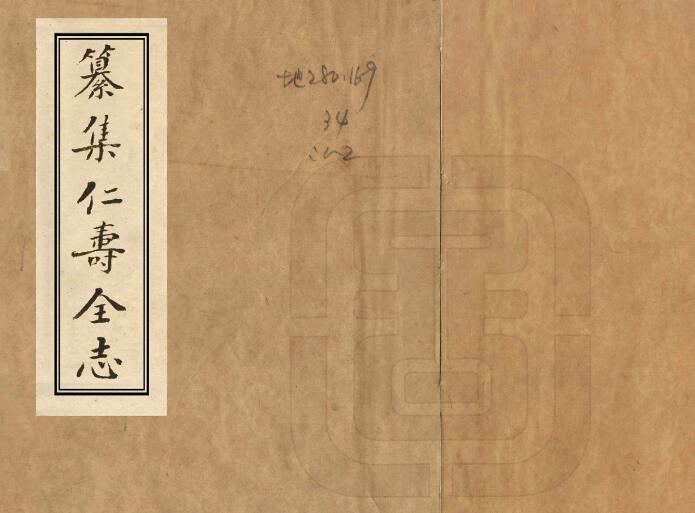 纂集仁壽全志
地280.169
34